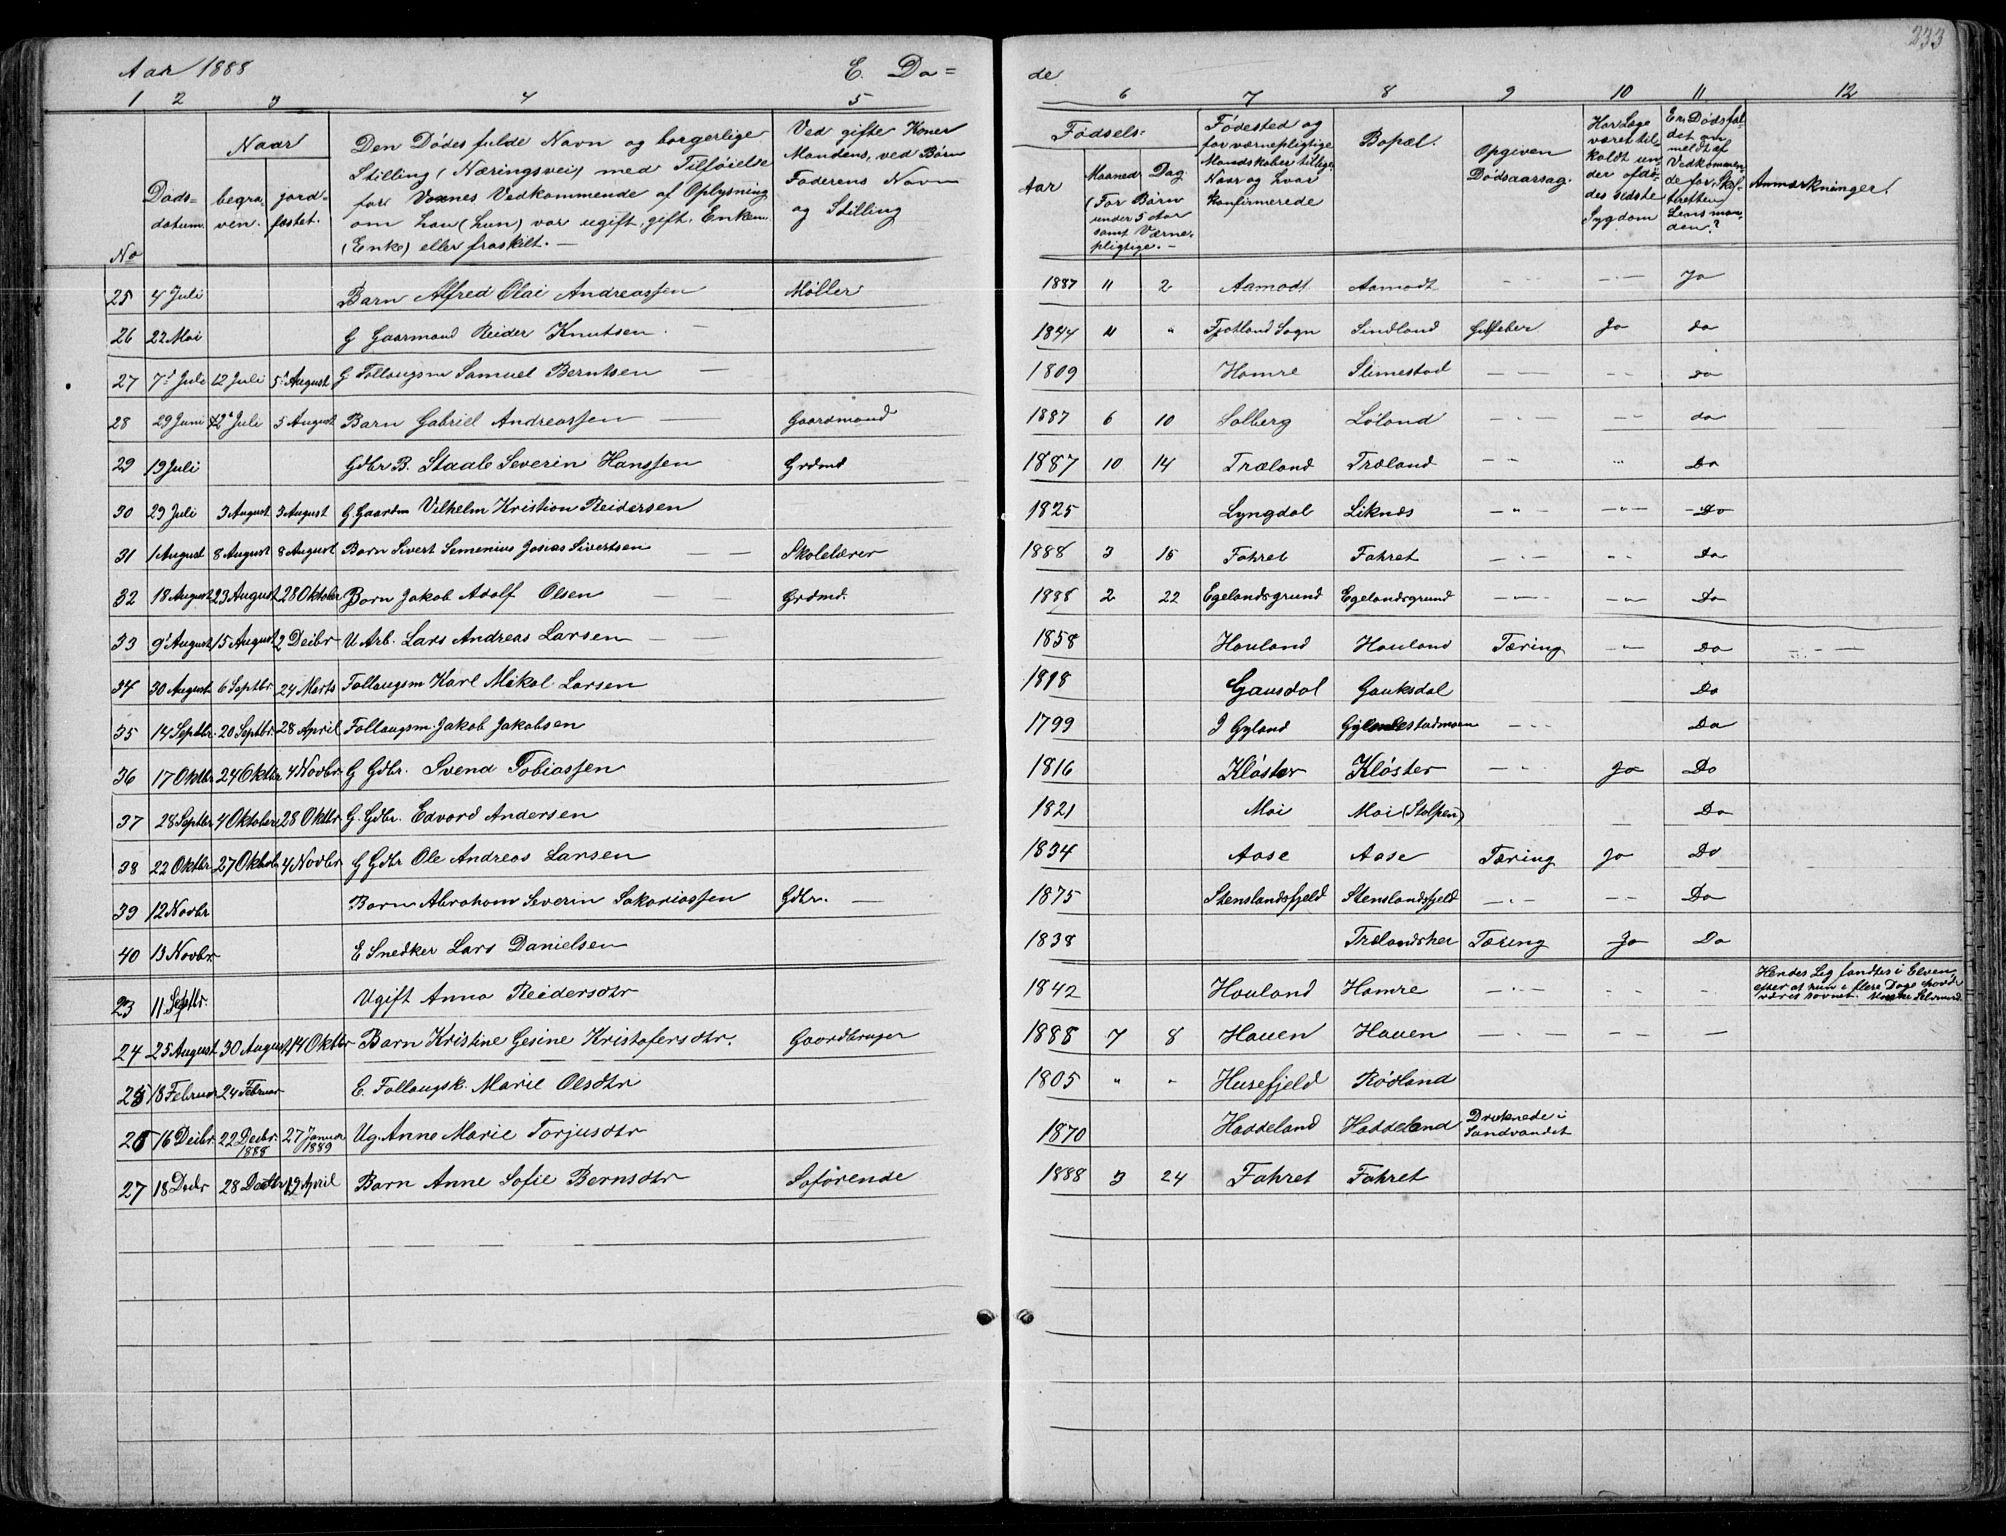 233
Aar 1888 E. Dø= de
1 2 3 4 5 6 7 8 9 10 11 12
No
Døds= datum.
Naar
begra- ven. jord= fæstet.
Den Dødes fulde Navn og borgerlige
Stilling (Næringsvei) med Tilføielse
for Voxnes Vedkommende af Oplysning
om han (hun) var ugift, gift, Enkem.
(Enke) eller fraskilt. —
Ved gifte Koner
Mandens, ved Børn
Faderens Navn
og Stilling
Fødsels=
Aar
Maaned Dag
(For Børn
under 5 Aar
samt Værne-
pligtige. —
Fødested og
for værnepligtige
Mandskaber tillige
Naar og hvor
Konfirmerede
Bopæl.
Opgiven
Dødsaarsag.
Har Læge
været til-
kaldt un-
der afdø-
des sidste
Sygdom
Er Dødsfal-
det an
meldt af
Vedkommen-
de for Skif-
teretten
Lensman-
den?
Anmærkninger.
25 4 Juli Barn Alfred Olai Andreassen Møller 1887 11 2 Aamodt Aamodt - - - - Ja
26 22 Mai G Gaarmand Reider Knutsen. — 1844 " " Fjotland Sogn Sindland Ja do
27 7d Juli 12 Juli 5d August G Follaugsm Samuel Berntsen — 1809 Homre Slimestad - - - do
28 29 Juni 12d Juli 5 August Barn Gabriel Andreassen — Gaardmand 1887 6 10 Solberg Løland - - - do
29 19 Juli Gdbr B. Staale Severin Hanssen Grdmd 1887 10 14 Træland Træland - - " Do
30 29 Juli 3 August 3 August G. Gaardm Vilhelm Kristian Reidersen 1825 Lyngdal Liknæs - " - - " - Do
31 1 August 8 August 8 August Barn Sivert Semenius Josias Sivertsen — — Skolelærer 1888 3 15 Fahret Fahret - - - - - Do
32 18 August 23 August 28 Oktober Barn Jakob Adolf Olsen — — Grdmd. 1888 2 22 Egelandsgrund Egelandsgrund - - - - " - Do
33 9d August 15 August 2 Decbr U Arb. Lars Andreas Larsen — — 1858 Houland Houland Tæring - " - Do - . - —
34 30 August 6 Septbr. 24 Marts Follaugsm Karl Mikal Larsen 1818 Gausdal Gauksdal Do
35 14 Septbr. 20 Septbr. 28 April Follaugsm. Jakob Jakobsen 1799 I Gyland - - - Do
36 17 Oktbr 24 Oktbr 4 Novbr. G Gdbr. Svend Tobiassen 1816 Kløster Kløster - - - Ja Do
37 28 Septbr 4 Oktober 28 Oktbr G. Gdbr. Edvard Andersen 1821 Moi Moi (Stolpen) Do
38 22 Oktbr 27 Oktob 4 Novbr G Gdbr Ole Andreas Larsen 1834 Aase Aase Tæring Ja Do
39 12 Novbr Barn Abraham Severin Sakariassen Gdbr. — 1875 Stenslandsfjeld Stenslandsfjeld - . - - - Do
40 13 Novbr. E Snedker Lars Danielsen 1838 Trælandshei Tæring Ja Do
23 11 Septbr. Ugift Anna Reidersdtr 1842 Houland Homre - - - - - - Hendes Lig fandtes i Elven, efter at hun i flere Dage havde været savnet.
24 25 August 30 August 14 Oktbr Barn Kristine Gesine Kristofersdtr. Gaardbruger 1888 7 8 Hauen Hauen - . - - - —
25 18 Februar 24 Februar E. Follaugsk. Marie Olsdtr 1805 " " Husefjeld Rødland
26 16 Decbr. 22 Decbr. 1888 27 Januar 1889 Ug. Anne Marie Torjusdtr 1870 Haddeland Haddeland Druknede i Landvandet
27 18 Decbr 28 Decbr 19 April Barn Anne Sofie Bernsdtr Søførende 1888 3 24 Fahret Fahret